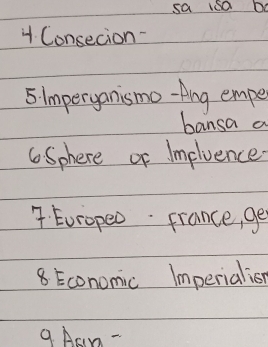 sa isa ba
4. Consecion-
5. Imperyanismo - Ang empe
bansa a
6. Sphere of Impluence-
7. Europeo - france, ge
8. Economic Imperialism
9. Asya -